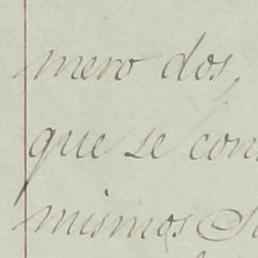 mero dos,
que se con
mismos